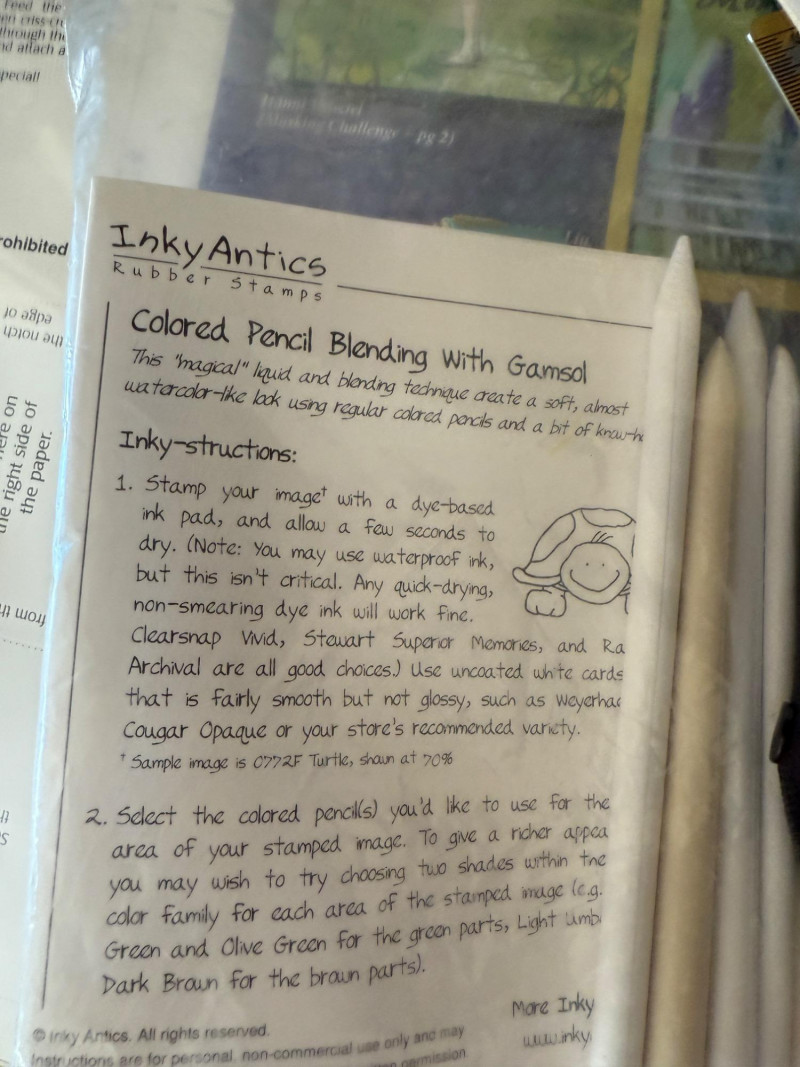 Feed the
through the
nd attach a
peciall
rohibited
edge of
the notch
ere on
the right side of
the paper.
from th
(Masking Challenge - pg 2)
Inky Antics
Rubber Stamps
Colored Pencil Blending With Gamsol
This "magical" liquid and blending technique create a soft, almost
watercolor-like look using regular colored pencils and a bit of know-h
Inky-structions:
1. Stamp your image† with a dye-based
ink pad, and allow a few seconds to
dry. (Note: You may use waterproof ink,
but this isn't critical. Any quick-drying,
non-smearing dye ink will work fine.
Clearsnap Vivid, Stewart Superior Memories, and Ra
Archival are all good choices.) Use uncoated white cards
that is fairly smooth but not glossy, such as Weyerhae
Cougar Opaque or your store's recommended variety.
† Sample image is 0772F Turtle, shown at 70%
2. Select the colored pencil(s) you'd like to use for the
area of your stamped image. To give a richer appea
you may wish to try choosing two shades within the
color family for each area of the stamped image (e.g.
Green and Olive Green for the green parts, Light Umb
Dark Brown for the brown parts).
More Inky
www.inky
© Inky Antics. All rights reserved.
Instructions are for personal, non-commercial use only and may
permission